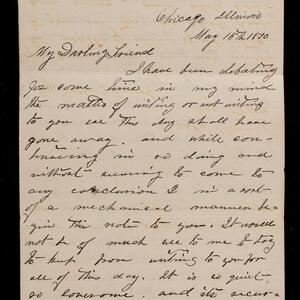 Chicago Illinois
May 15th 1870
My Darling Friend
I have been debating
for some time in my mind
the matter of writing or not writing
to you ere this day shall have
gone away. and while con-
tinuing in so doing and
without seeming to come to
any conclusion I in a sort
of a mechanical manner be-
gin this note to you. It would
not be of much use to me to try
to keep from writing to you for
all of this day. It is so quiet
so lonesome. and its